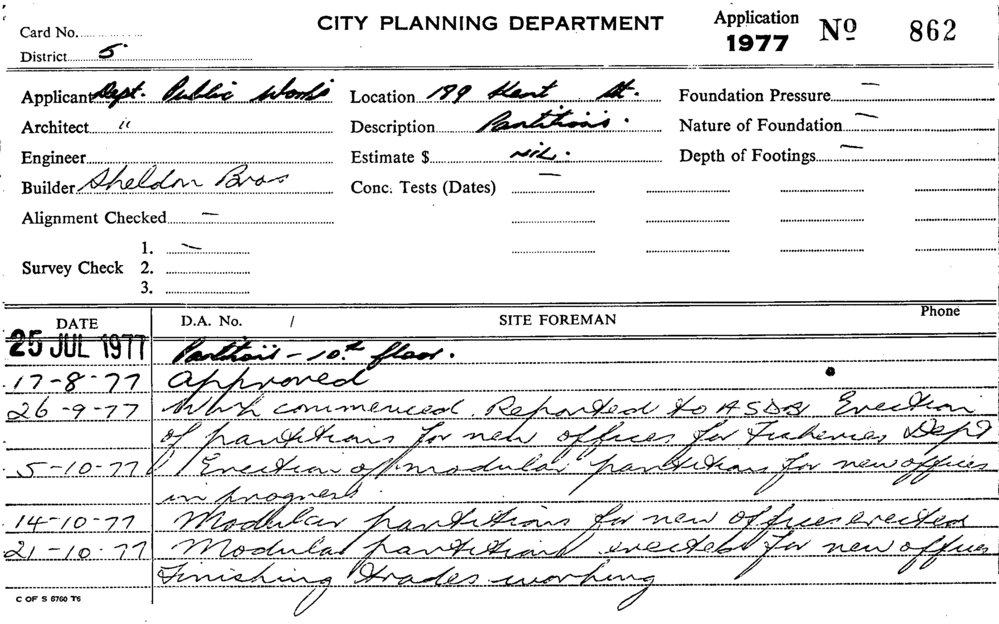 CITY PLANNING DEPARTMENT
Application 1977 No 862
Card No.
District 5
Applicant Dept. Public Works
Location 199 Kent St.
Foundation Pressure —
Architect "
Description Partitions.
Nature of Foundation —
Engineer
Estimate $ NIL.
Depth of Footings —
Builder Sheldon Bros
Conc. Tests (Dates) —
Alignment Checked —
Survey Check
1. —
2.
3.
DATE
D.A. No. /
SITE FOREMAN
Phone
25 JUL 1977 Partitions – 10th floor.
17-8-77 Approved
26-9-77 Work commenced. Reported to ASDB Erection
of partitions for new offices for Fisheries Dept
5-10-77 Erection of modular partitions for new offices
in progress.
14-10-77 Modular partitions for new offices erected
21-10-77 Modular partitions erected for new offices
Finishing trades working
C OF S 6760 T6